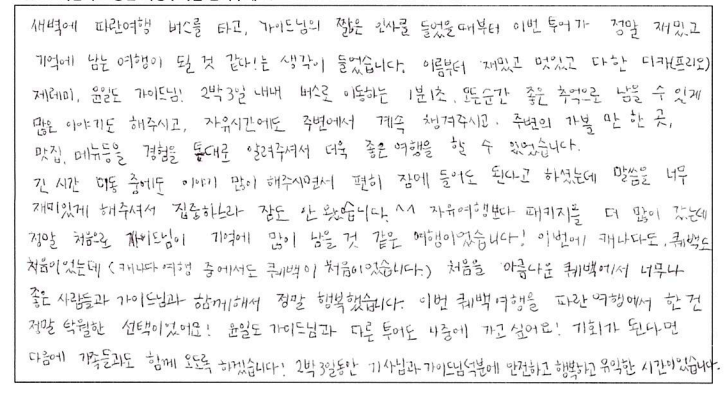 새벽에 파란여행 버스를 타고, 가이드님의 짧은 인사를 들었을때부터 이번 투어가 정말 재밌고
기억에 남는 여행이 될 것 같다!는 생각이 들었습니다. 이름부터 재밌고 멋있고 다한 디카(프리오)
제레미, 윤일도 가이드님! 2박3일 내내 버스로 이동하는 1분1초, 모든순간 좋은 추억으로 남을 수 있게
많은 이야기도 해주시고, 자유시간에도 주변에서 계속 챙겨주시고. 주변의 가볼 만 한 곳,
맛집, 메뉴등을 경험을 통대로 알려주셔서 더욱 좋은여행을 할 수 있었습니다.
긴 시간 이동 중에도 이야기 많이 해주시면서 편히 잠에 들어도 된다고 하셨는데 말씀을 너무
재미있게 해주셔서 집중하느라 잠도 안 왔습니다.^^ 자유여행보다 패키지를 더 많이 갔는데
정말 처음으로 가이드님이 기억에 많이 남을 것 같은 여행이었습니다! 이번에 캐나다도, 퀘백도
처음이었는데 (캐나다여행 중에서도 퀘백이 처음이었습니다.) 처음을 아름다운 퀘백에서 너무나
좋은 사람들과 가이드님과 함께해서 정말 행복했습니다. 이번 퀘백여행을 파란여행에서 한건
정말 탁월한 선택이었어요! 윤일도 가이드님과 다른 투어도 나중에 가고싶어요! 기회가 된다면
다음에 가족들과도 함께 오도록 하겠습니다! 2박3일동안 기사님과 가이드님덕분에 안전하고 행복하고 유익한 시간이었습니다.